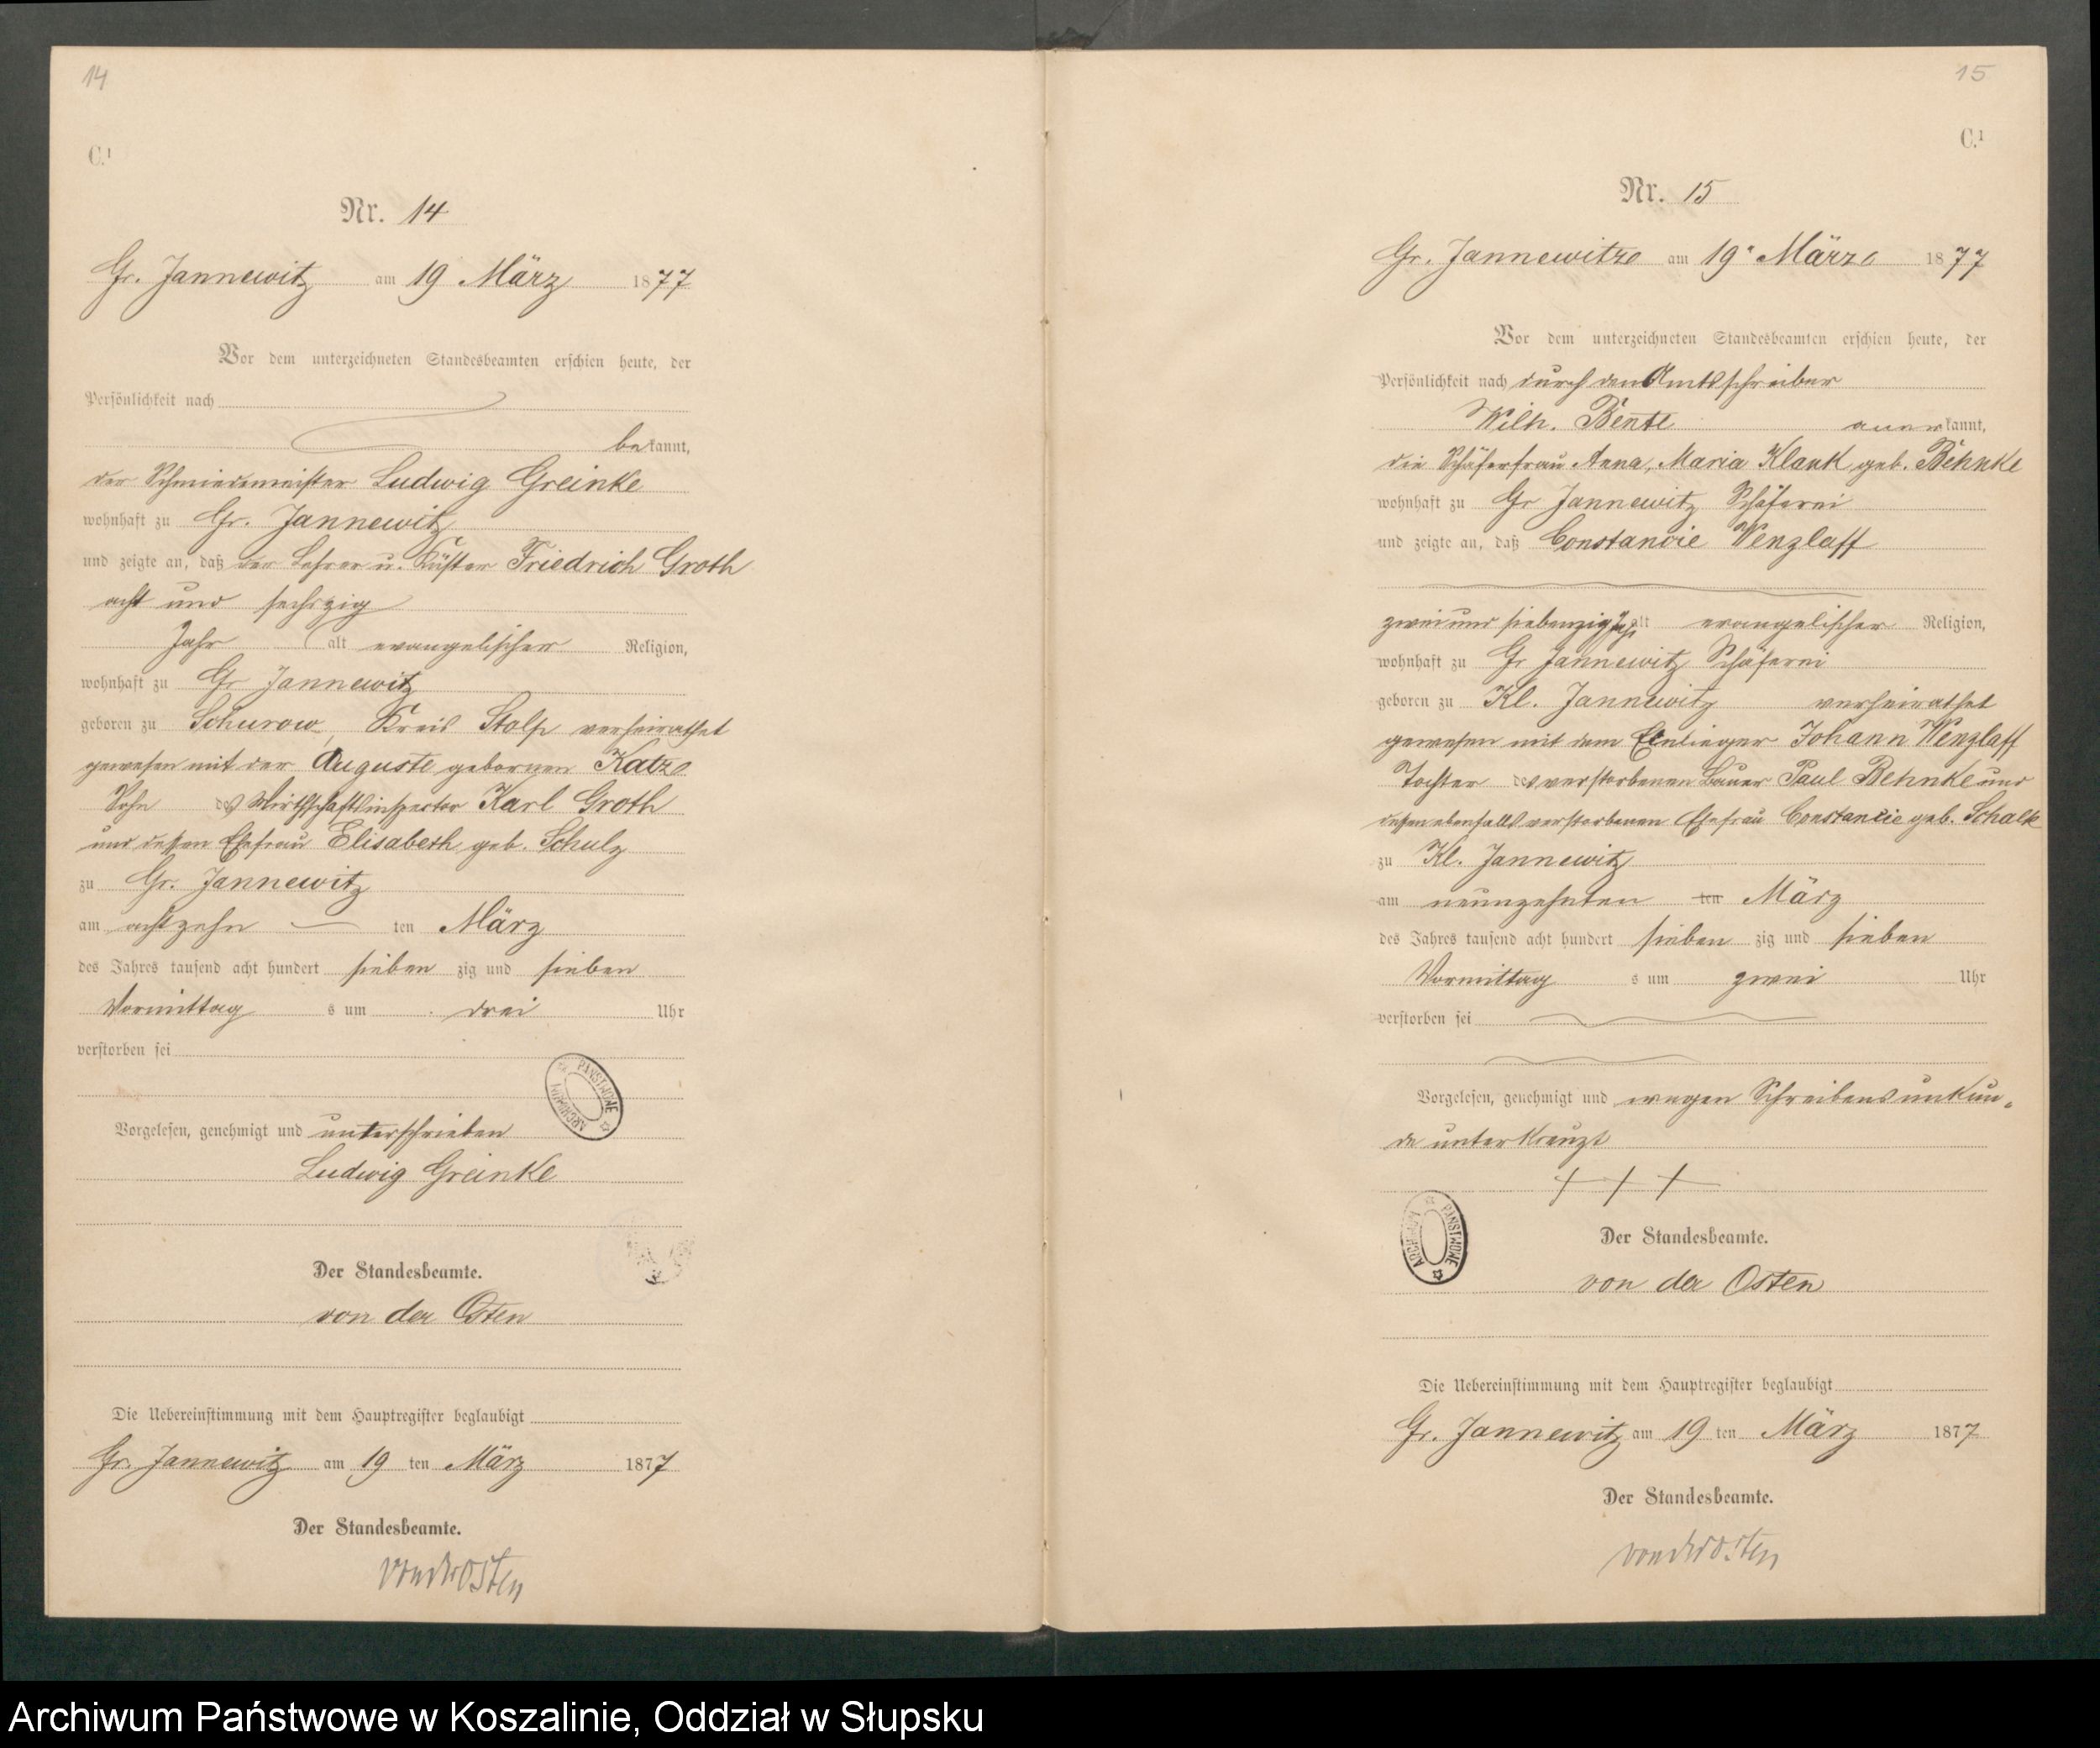 14
C.1
Nr. 14
Gr. Jannewitz am 19 März 1877
Vor dem unterzeichneten Standesbeamten erschien heute, der
Persönlichkeit nach
bekannt,
der Schmiedemeister Ludwig Greinke
wohnhaft zu Gr. Jannewitz
und zeigte an, daß der Lehrer u. Küster Friedrich Groth
acht und sechszig
Jahr alt evangelischer Religion,
wohnhaft zu Gr Jannewitz
geboren zu Schurow, Kreis Stolp verheirathet
gewesen mit der Auguste gebornen Katz
Sohn des Wirthschaftsinspector Karl Groth
und dessen Ehefrau Elisabeth geb. Schulz
zu Gr. Jannewitz
am achtzehn ten März
des Jahres tausend acht hundert sieben zig und sieben
Vormittag s um drei Uhr
verstorben sei
ARCHIWUM PAŃSTWOWE
Vorgelesen, genehmigt und unterschrieben
Ludwig Greinke
Der Standesbeamte.
von der Osten
Die Uebereinstimmung mit dem Hauptregister beglaubigt
Gr. Jannewitz am 19 ten März 1877
Der Standesbeamte.
von der Osten
15
C.1
Nr. 15
Gr. Jannewitz am 19 März 1877
Vor dem unterzeichneten Standesbeamten erschien heute, der
Persönlichkeit nach durch den Amtsschreiber
Wilh. Bente anerkannt,
die Schäferfrau Anna, Maria Klauk geb. Behnke
wohnhaft zu Gr Jannewitz Schäferei
und zeigte an, daß Constancie Wenzlaff
zwei und siebenzig Jahr alt evangelischer Religion,
wohnhaft zu Gr Jannewitz Schäferei
geboren zu Kl. Jannewitz verheirathet
gewesen mit dem Einlieger Johann Wenzlaff
Tochter des verstorbenen Bauer Paul Behnke und
dessen ebenfalls verstorbenen Ehefrau Constancie geb. Schalk
zu Kl. Jannewitz
am neunzehnten ten März
des Jahres tausend acht hundert sieben zig und sieben
Vormittag s um zwei Uhr
verstorben sei
Vorgelesen, genehmigt und wegen Schreibensunkun-
de unterkreuzt
+ + +
ARCHIWUM PAŃSTWOWE
Der Standesbeamte.
von der Osten
Die Uebereinstimmung mit dem Hauptregister beglaubigt
Gr. Jannewitz am 19 ten März 1877
Der Standesbeamte.
von der Osten
Archiwum Państwowe w Koszalinie, Oddział w Słupsku